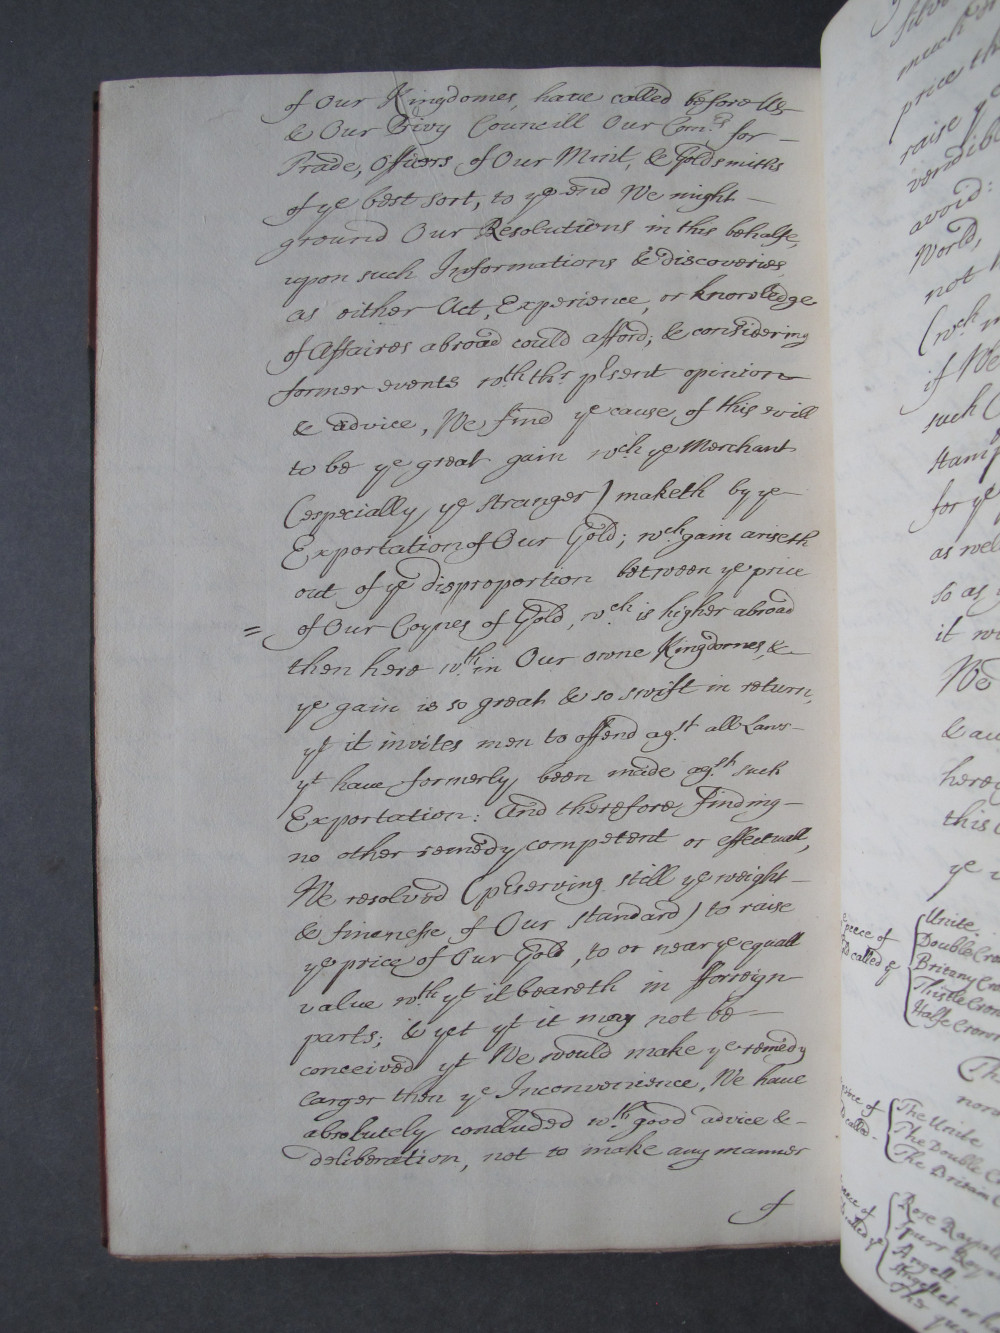 of Our Kingdomes, have called before Us
& Our Privy Councill Our Com.rs for —
Trade, Officers of Our Mint, & Goldsmiths
of ye best sort, to ye end We might —
ground Our Resolutions in this behalfe,
upon such Informations & discoveries
as either Act, Experience, or knowledge
of Affaires abroad could afford; & considering
former events wth ths pĺsent opinion
& advice, We find ye cause of this evill
to be ye great gain wch ye Merchant
(especially ye stranger) maketh by ye —
Exportation of Our Gold; wch gain ariseth
out of ye disproportion between ye price
= of Our Coynes of Gold, wch is higher abroad
then here wthin Our owne Kingdomes, & —
ye gain is so great & so swift in return,
yt it invites men to offend agst all Laws —
yt have formerly been made agst such
Exportation: And therefore finding —
no other remedy competent or effectuall,
We resolved (pĺserving still ye weight —
& finenesse of Our standard) to raise
ye price of Our Gold, to or near ye equall
value wth yt it beareth in fforreign
parts; & yet yt it may not be —
conceived yt We would make ye remedy
larger then ye Inconvenience, We have
absolutely concluded wth good advice & —
deliberation, not to make any manner
of
much
price th
raise ye
vendible
avoid:
World,
not
(wch
if We
such
Stamp
for ye
as well
so as
it
We
&
here
this
ye
peece of
called ye
Unite.
Double Cro
Britany Cro
Thistle Crow
Halfe Crow
Th
peece of
called —
The Unite
The Double C
The Britain
peece of
called ye
Rose Royal
Spurr Roya
Angell
Angellet or ha
The